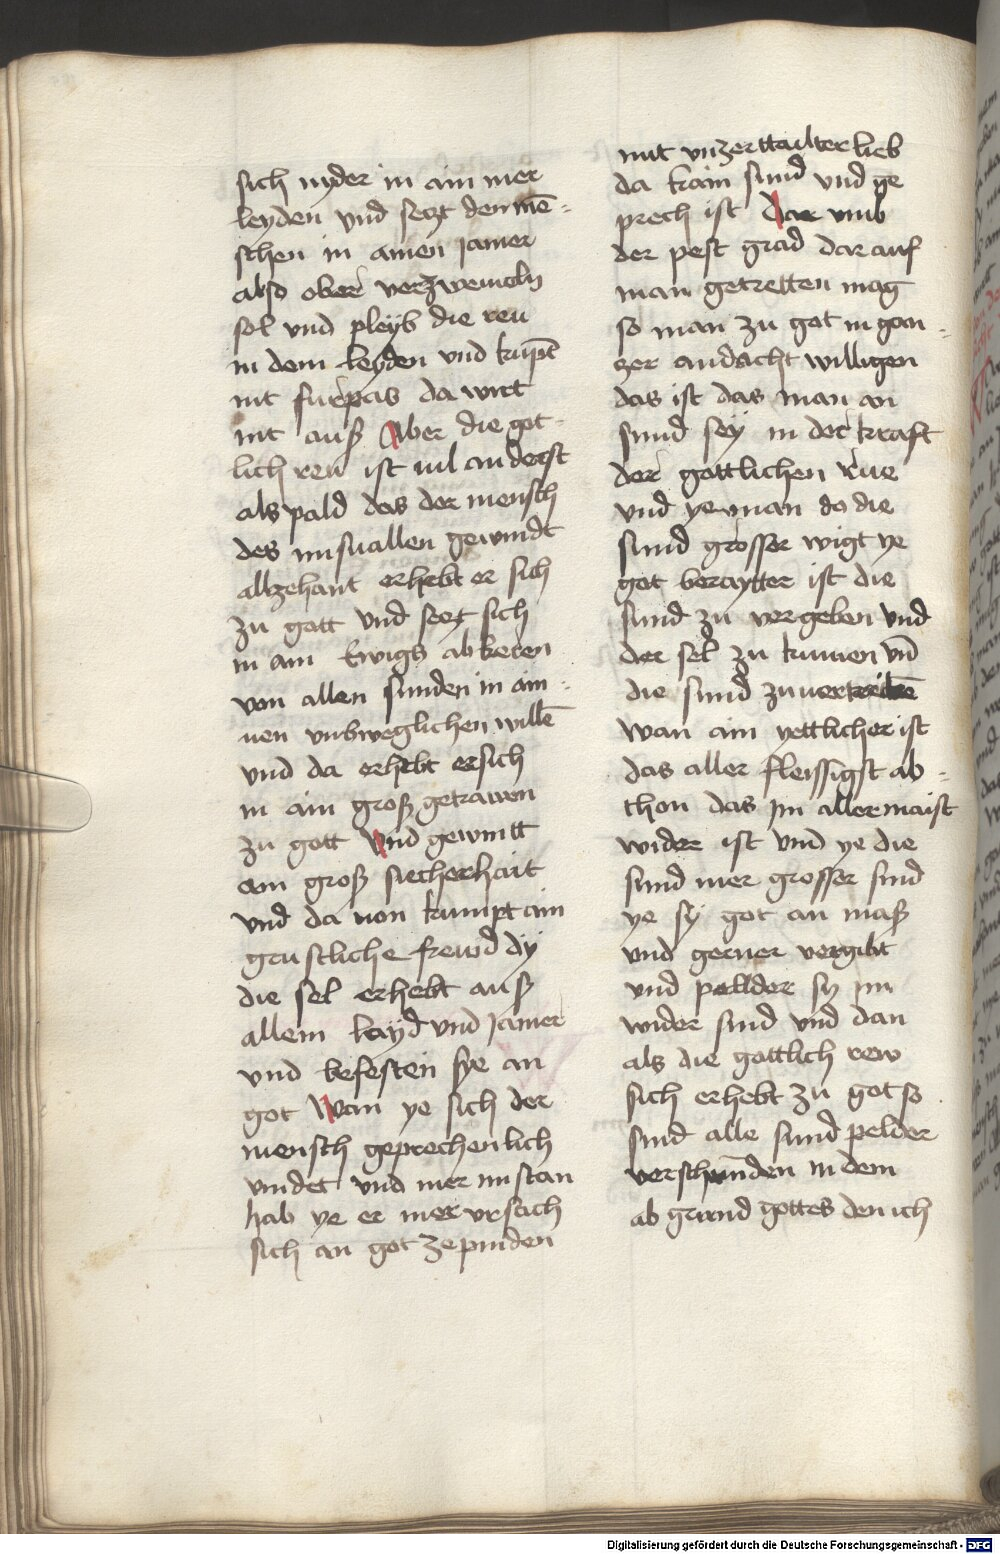 sich nyder in ain mer
leyden vnd seczt den mē-
schen in ainen Jamer
also ober verzweiueln
sol vnd pleyb die reu
in dem leyden vnd kūpt
nit furpas da wirt
nit auß Aber die got-
lich reu ist vil anderst
als pald das der mensch
des missuallen gewindt
allzehant erhebt er sich
zu gott vnd seczt sich
in ain Ewigs ab keren
von allen sunden in ain-
nen vnbweglichen willē
vnd da erhebt er sich
in ain groß getrawen
zu gott vnd gewintt
ain groß sicherhait
vnd da von kumpt ain
geistliche frewd dy
die sel erhebt auß
allem layd vnd Jamer
vnd befesten sye an
got Wan ye sich der
mensch geprechenlich
vindet vnd mer mistan
hab ye er mer vrsach
sich an got ze pinden
mit vnzerttailter lieb
da kain sund vnd ge
prech ist Dar vmb
der pest grad dar auf
man getretten mag
so man zu got in gan-
zer andacht willigen
das ist das man an
sund sey in der kraft
der gottlichen rue
vnd ye man do die
sund grosser wigt ye
got beraytter ist die
sund zu vergeben vnd
der sel zu kumen vn̄
die sund zu uertreibē
wan ain yettlicher ist
das aller fleissigst ab-
thon das im aller maist
wider ist vnd ye die
sund mer grosser sind
ye sy got an maß
vnd gerner vergibt
vnd pallder sy im
wider sind vnd dan
als die gottlich rew
sich erhebt zu got so
sind alle sund pelder
verschwunden in dem
ab grund gottes den ich
Digitalisierung gefördert durch die Deutsche Forschungsgemeinschaft - DFG